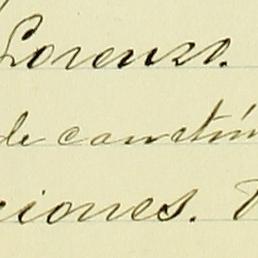 Lorenzo.
de constru
ciones.